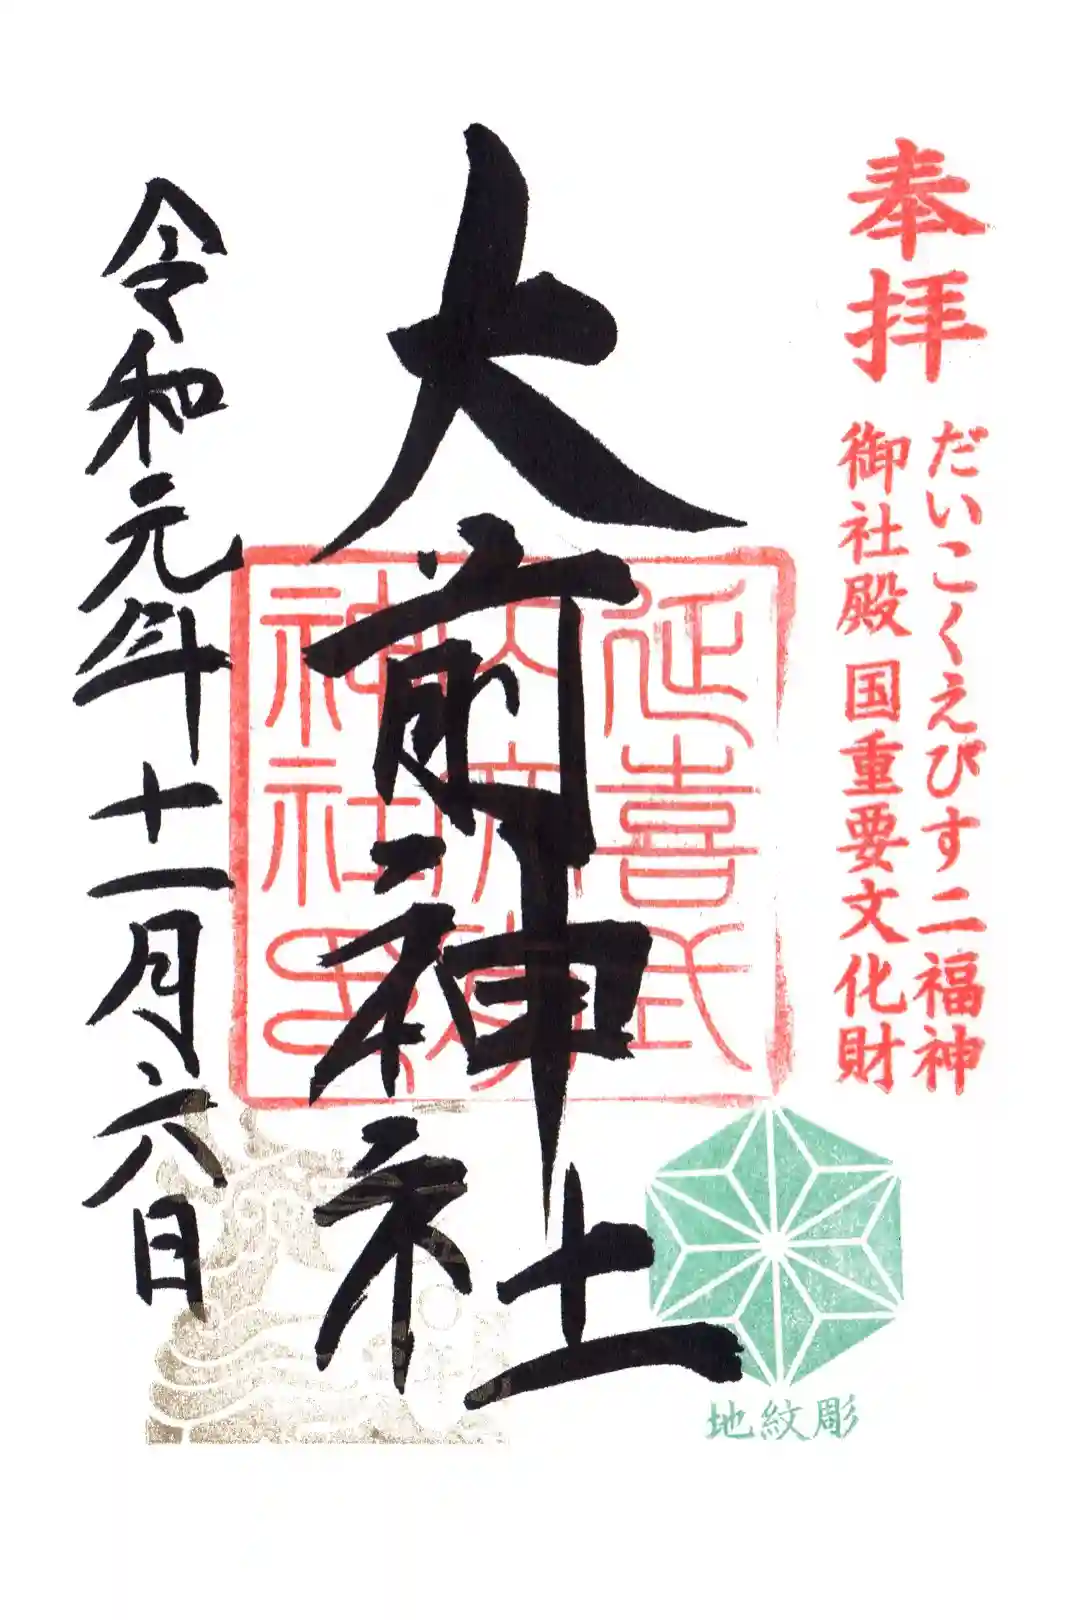 奉拝
だいこくえびす二福神
御社殿国重要文化財
延喜式
神社
大前神社
令和元年十一月六日
地紋彫